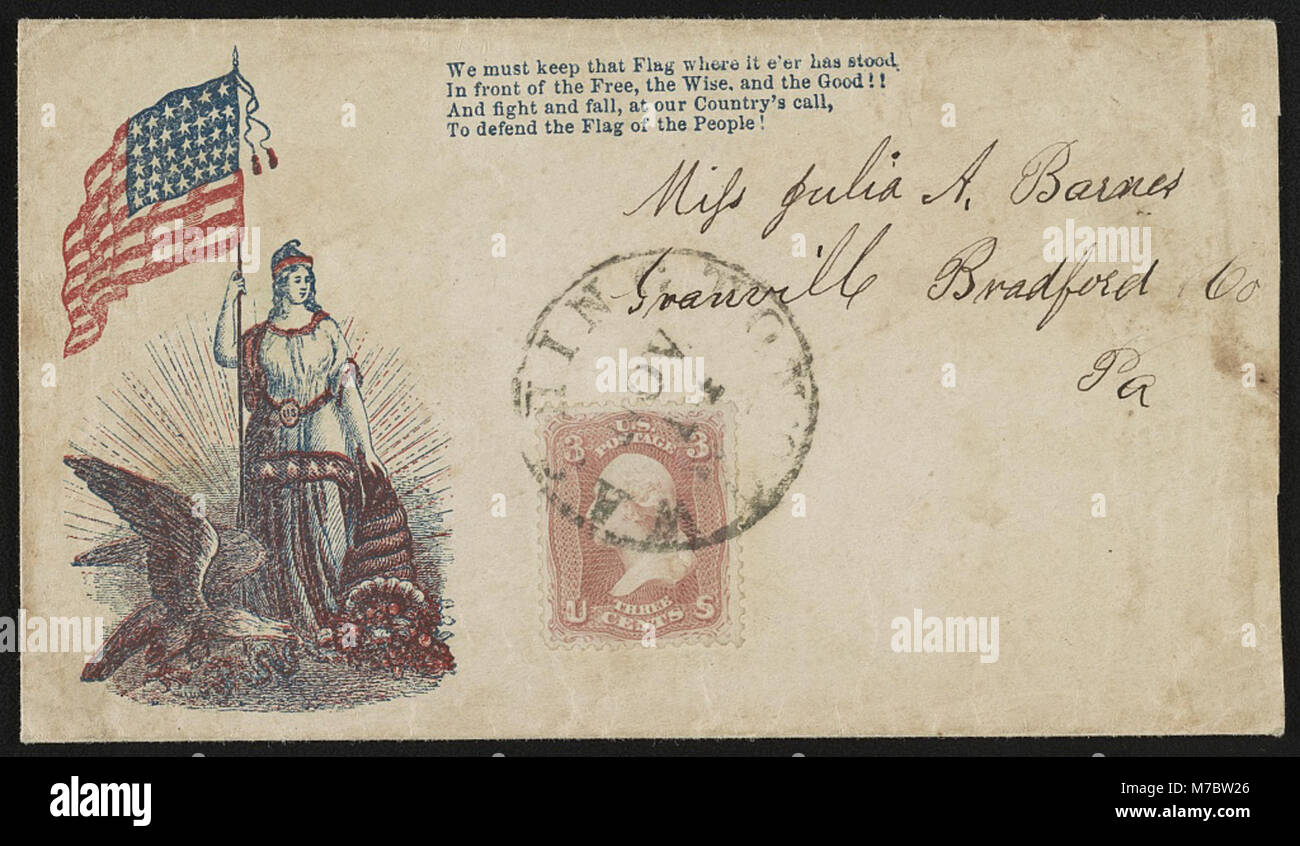 We must keep that Flag where it e'er has stood
In front of the Free, the Wise, and the Good!!
And fight and fall, at our Country's call,
To defend the Flag of the People!
Miss Julia A. Barnes
Granvill Bradford Co
Pa
WASHINGTON
NOV
U.S.
POSTAGE
3 3
THREE
CENTS
U S
US
alamy
alamy
Image ID: M7BW26
www.alamy.com